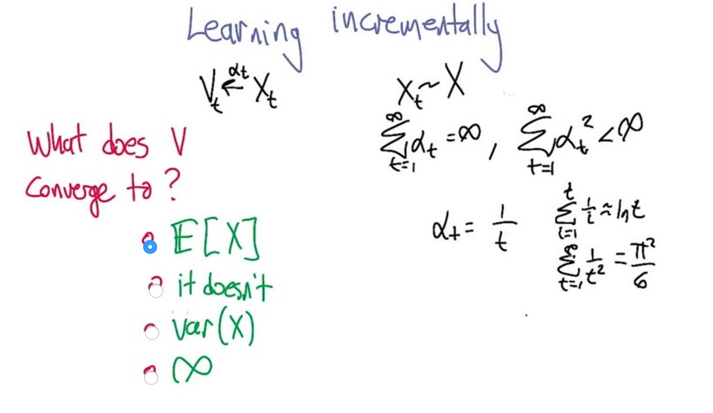 Learning incrementally
V_t ←^{α_t} X_t
X_t ~ X
∑_{t=1}^{∞} α_t = ∞, ∑_{t=1}^{∞} α_t² < ∞
What does V
converge to?
E[X]
it doesn't
var(X)
∞
α_t = 1/t
∑_{i=1}^{t} 1/i ≈ ln t
∑_{t=1}^{∞} 1/t² = π²/6